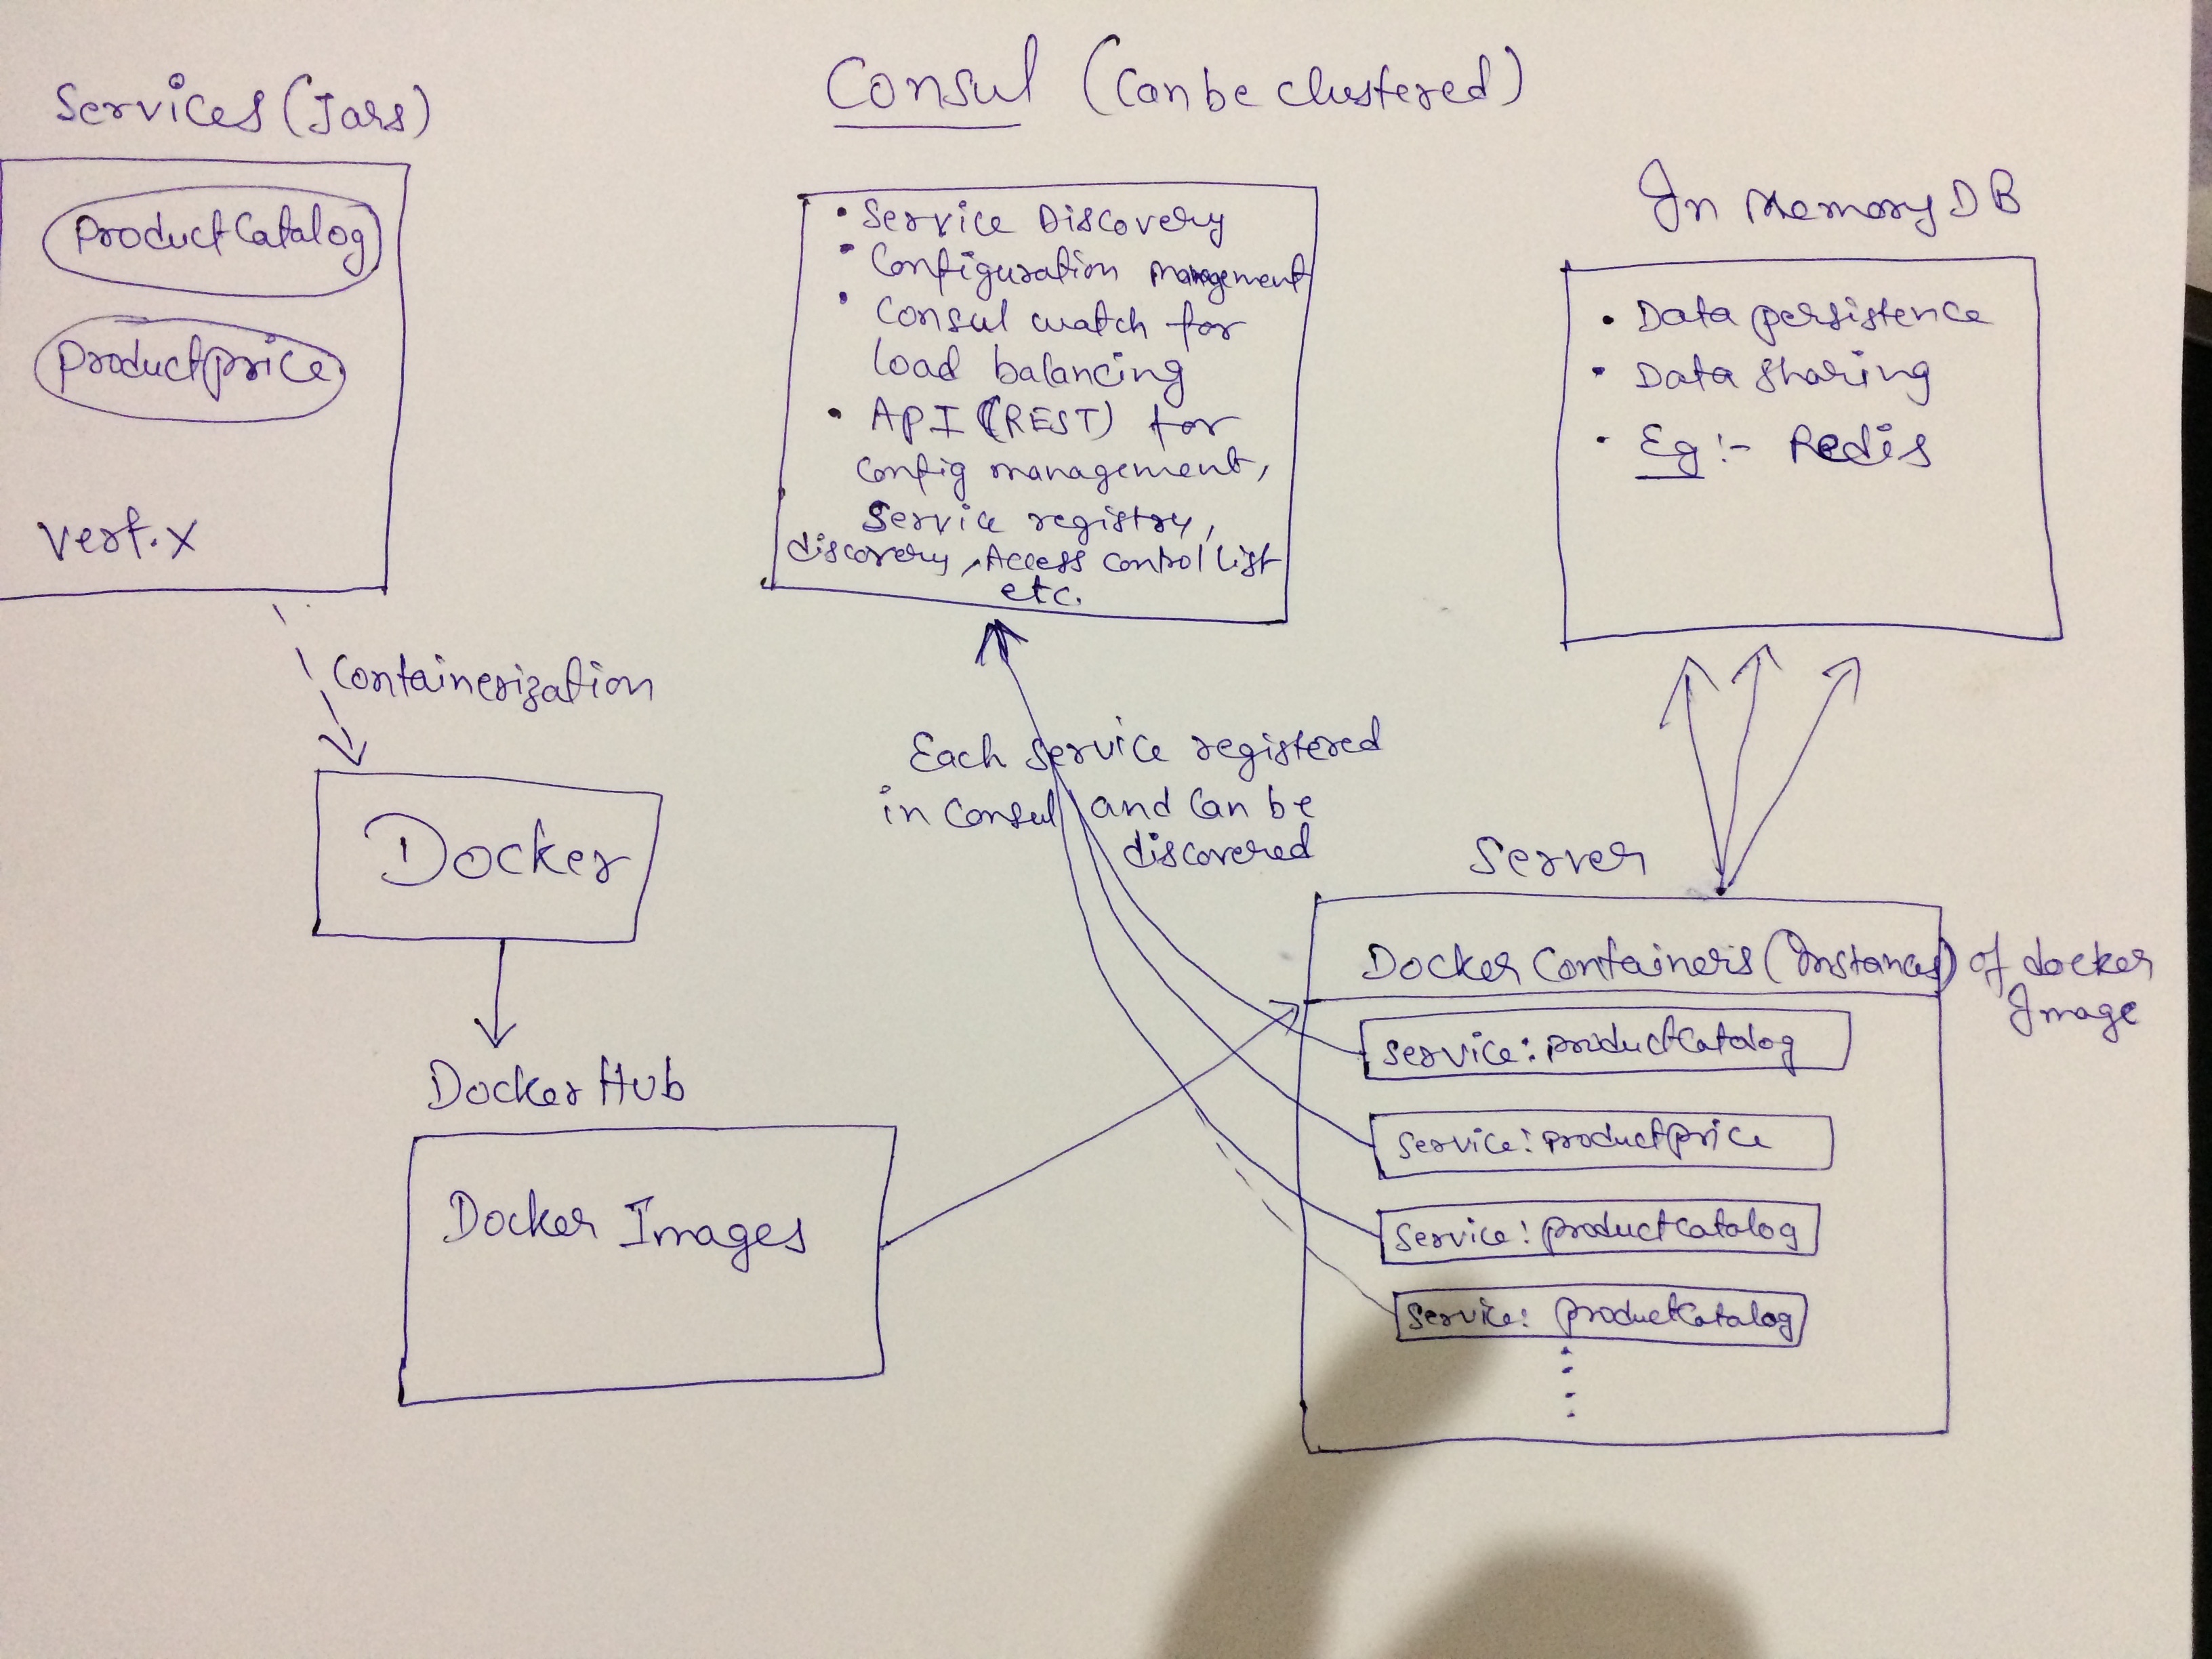 Services (Jars)
ProductCatalog
ProductPrice
Vert.x
Containerization
Docker
Docker Hub
Docker Images
Consul (Can be clustered)
• Service Discovery
• Configuration management
• Consul watch for
load balancing
• API (REST) for
config management,
Service registry/
discovery, Access control list
etc.
Each service registered
in Consul and can be
discovered
In memory DB
• Data persistence
• Data sharing
• Eg :- Redis
Server
Docker Containers (Instances) of docker
Image
Service: productCatalog
Service: productPrice
Service: productCatalog
Service: productCatalog